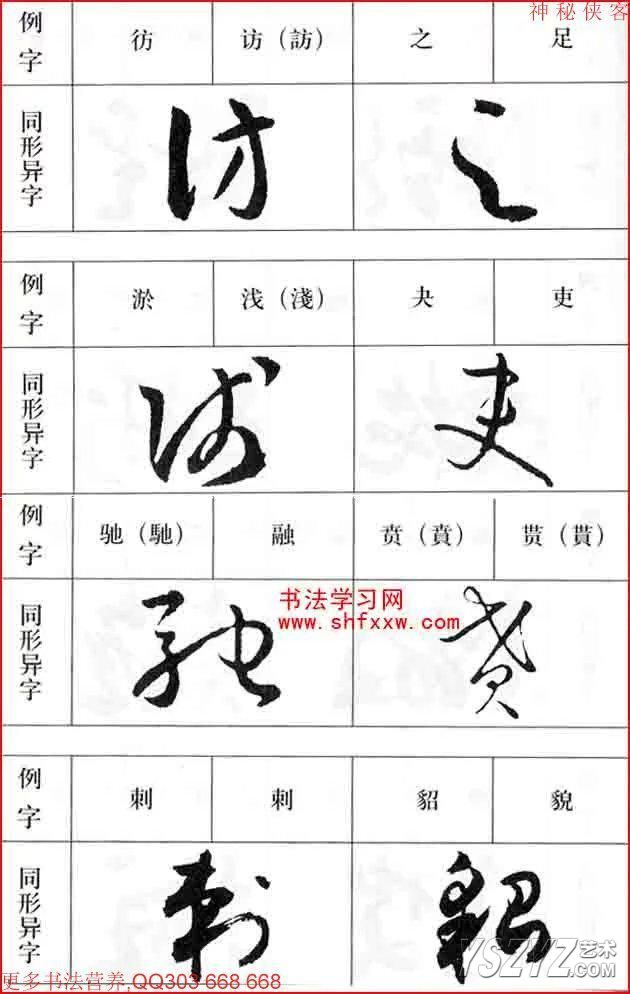 神秘侠客
例字 彷 访（訪） 之 足
同形异字
例字 淤 浅（淺） 夬 吏
同形异字
例字 驰（馳） 融 贲（賁） 贳（貰）
同形异字
书法学习网
www.shfxxw.com
例字 刺 刺 貂 貌
同形异字
YSZYZ艺术
.com
更多书法营养,QQ303 668 668